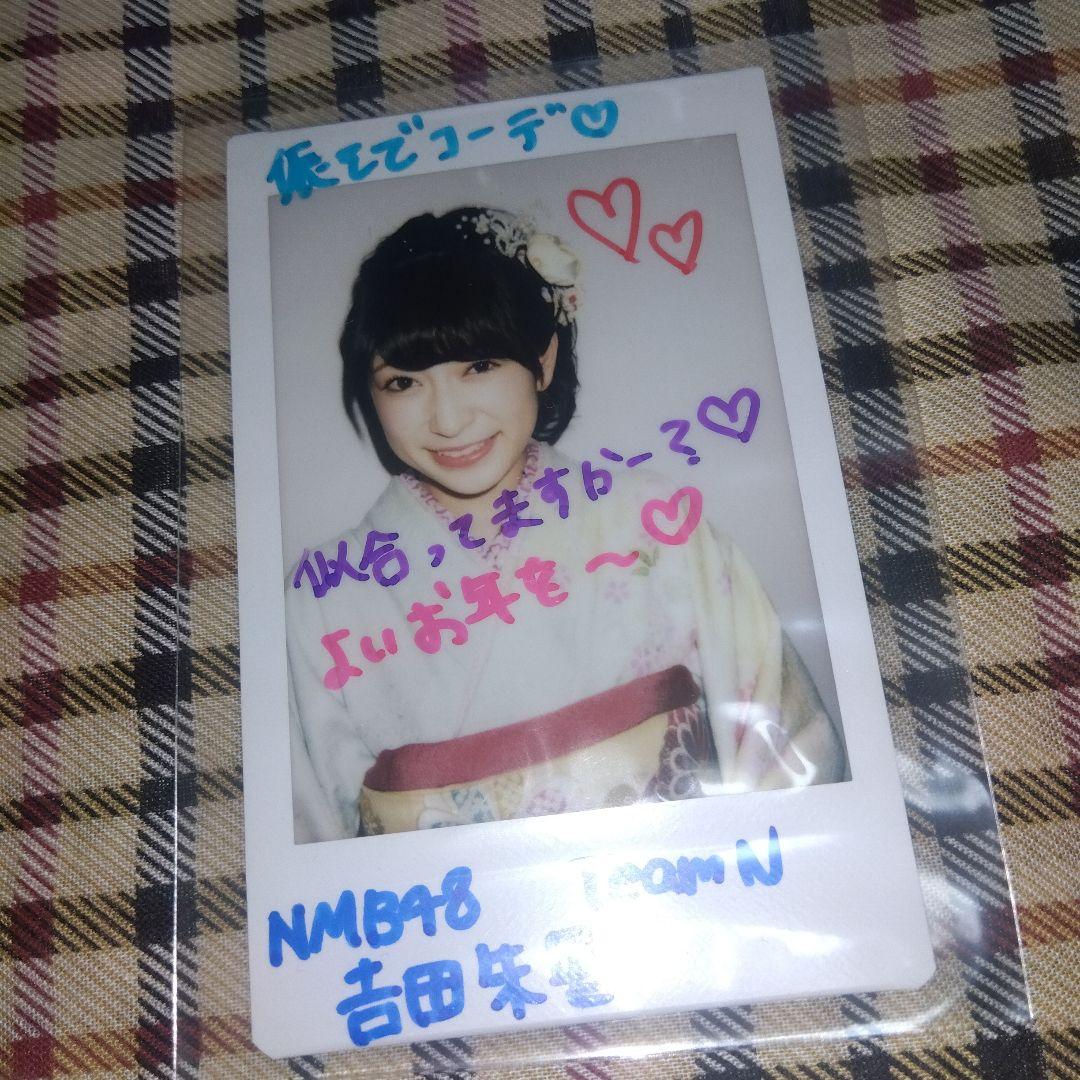 振そでコーデ♡
似合ってますかー？♡
よいお年を〜♡
NMB48 Team N
吉田朱里